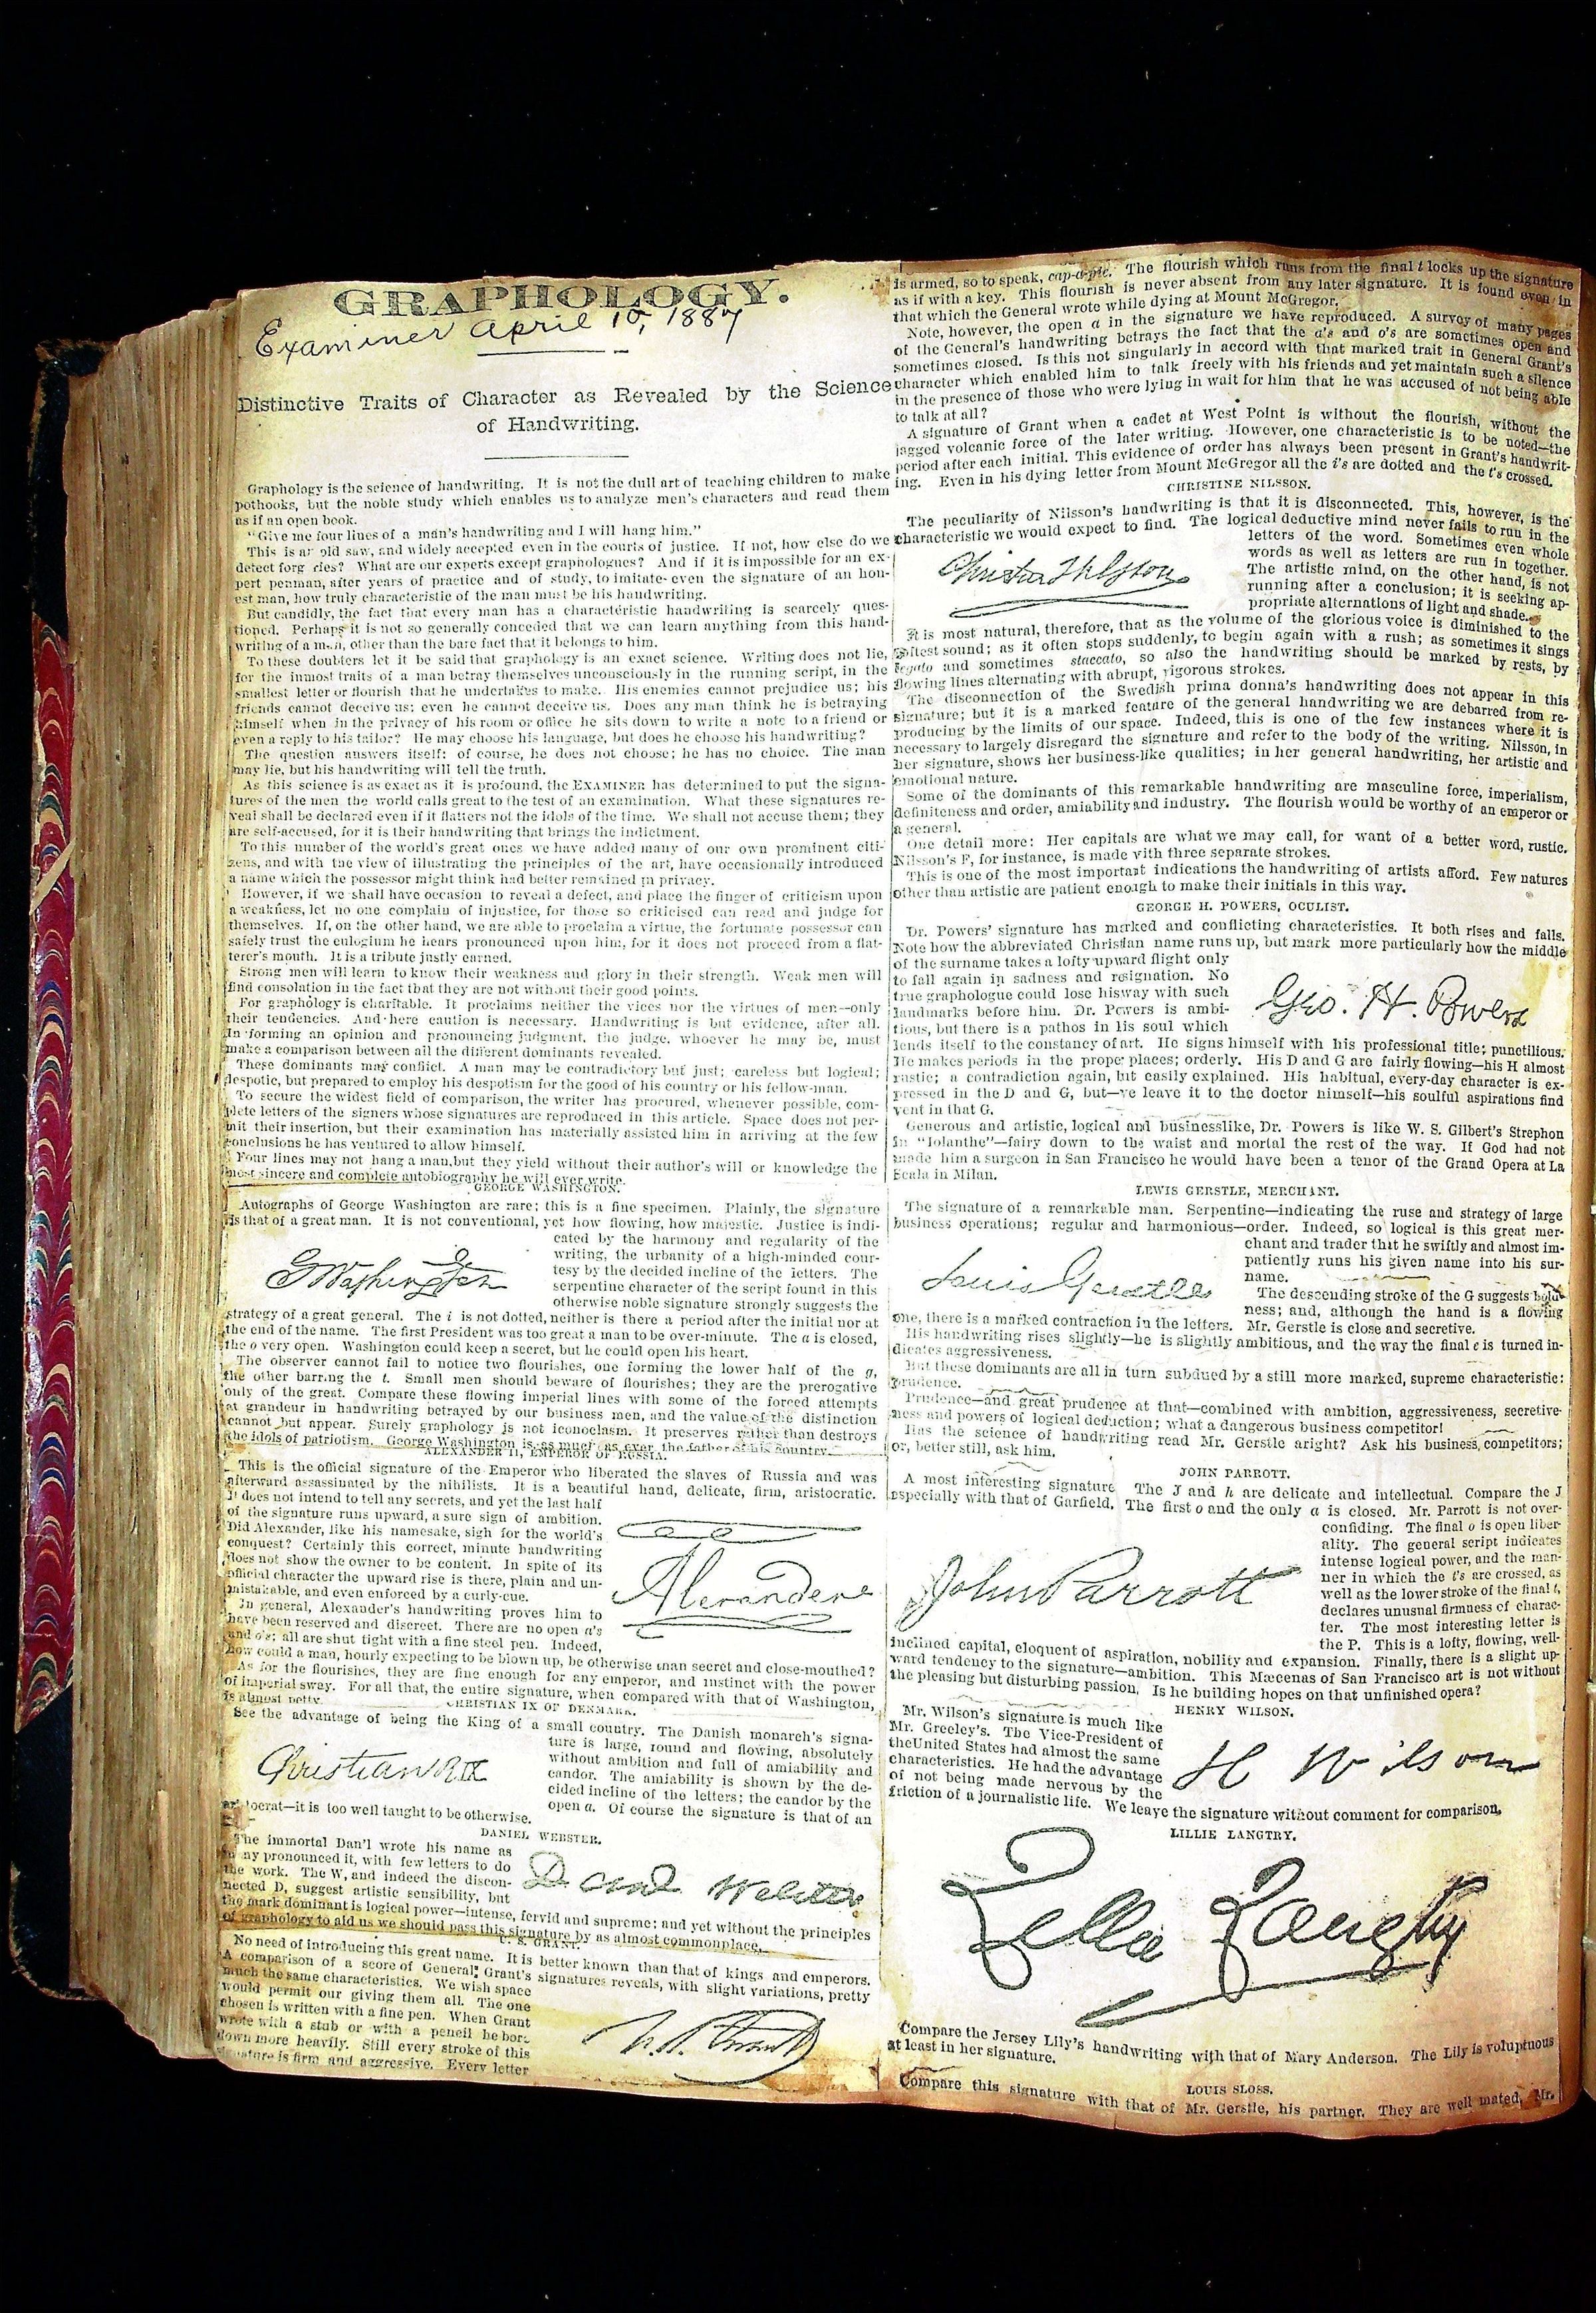 GRAPHOLOGY.
Examiner April 10, 1887
Distinctive Traits of Character as Revealed by the Science
of Handwriting.
Graphology is the science of handwriting. It is not the dull art of teaching children to make
pothooks, but the noble study which enables us to analyze men's characters and read them
as if an open book.
"Give me four lines of a man's handwriting and I will hang him."
This is an old saw, and widely accepted even in the courts of justice. If not, how else do we
detect forgeries? What are our experts except graphologues? And if it is impossible for an ex-
pert penman, after years of practice and of study, to imitate even the signature of an hon-
est man, how truly characteristic of the man must be his handwriting.
But candidly, the fact that every man has a characteristic handwriting is scarcely ques-
tioned. Perhaps it is not so generally conceded that we can learn anything from this hand-
writing of a man, other than the bare fact that it belongs to him.
To these doubters let it be said that graphology is an exact science. Writing does not lie,
for the inmost traits of a man betray themselves unconsciously in the running script, in the
smallest letter or flourish that he undertakes to make. His enemies cannot prejudice us; his
friends cannot deceive us; even he cannot deceive us. Does any man think he is betraying
himself when in the privacy of his room or office he sits down to write a note to a friend or
even a reply to his tailor? He may choose his language, but does he choose his handwriting?
The question answers itself: of course, he does not choose; he has no choice. The man
may lie, but his handwriting will tell the truth.
As this science is as exact as it is profound, the EXAMINER has determined to put the signa-
tures of the men the world calls great to the test of an examination. What these signatures re-
veal shall be declared even if it flatters not the idols of the time. We shall not accuse them; they
are self-accused, for it is their handwriting that brings the indictment.
To this number of the world's great ones we have added many of our own prominent citi-
zens, and with the view of illustrating the principles of the art, have occasionally introduced
a name which the possessor might think had better remained in privacy.
However, if we shall have occasion to reveal a defect, and place the finger of criticism upon
a weakness, let no one complain of injustice, for those so criticised can read and judge for
themselves. If, on the other hand, we are able to proclaim a virtue, the fortunate possessor can
safely trust the eulogium he hears pronounced upon him, for it does not proceed from a flat-
terer's mouth. It is a tribute justly earned.
Strong men will learn to know their weakness and glory in their strength. Weak men will
find consolation in the fact that they are not without their good points.
For graphology is charitable. It proclaims neither the vices nor the virtues of men—only
their tendencies. And here caution is necessary. Handwriting is but evidence, after all.
In forming an opinion and pronouncing judgment, the judge, whoever he may be, must
make a comparison between all the different dominants revealed.
These dominants may conflict. A man may be contradictory but just; careless but logical;
despotic, but prepared to employ his despotism for the good of his country or his fellow-man.
To secure the widest field of comparison, the writer has procured, whenever possible, com-
plete letters of the signers whose signatures are reproduced in this article. Space does not per-
mit their insertion, but their examination has materially assisted him in arriving at the few
conclusions he has ventured to allow himself.
Four lines may not hang a man, but they yield without their author's will or knowledge the
most sincere and complete autobiography he will ever write.
GEORGE WASHINGTON.
Autographs of George Washington are rare; this is a fine specimen. Plainly, the signature
is that of a great man. It is not conventional, yet how flowing, how majestic. Justice is indi-
cated by the harmony and regularity of the
writing, the urbanity of a high-minded cour-
tesy by the decided incline of the letters. The
serpentine character of the script found in this
otherwise noble signature strongly suggests the
GWashington
strategy of a great general. The i is not dotted, neither is there a period after the initial nor at
the end of the name. The first President was too great a man to be over-minute. The a is closed,
the o very open. Washington could keep a secret, but he could open his heart.
The observer cannot fail to notice two flourishes, one forming the lower half of the g,
the other barring the t. Small men should beware of flourishes; they are the prerogative
only of the great. Compare these flowing imperial lines with some of the forced attempts
at grandeur in handwriting betrayed by our business men, and the value of the distinction
cannot but appear. Surely graphology is not iconoclasm. It preserves rather than destroys
the idols of patriotism. George Washington is as much as ever the father of his country.
ALEXANDER II, EMPEROR OF RUSSIA.
This is the official signature of the Emperor who liberated the slaves of Russia and was
afterward assassinated by the nihilists. It is a beautiful hand, delicate, firm, aristocratic.
It does not intend to tell any secrets, and yet the last half
of the signature runs upward, a sure sign of ambition.
Did Alexander, like his namesake, sigh for the world's
conquest? Certainly this correct, minute handwriting
does not show the owner to be content. In spite of its
official character the upward rise is there, plain and un-
mistakable, and even enforced by a curly-cue.
In general, Alexander's handwriting proves him to
have been reserved and discreet. There are no open a's
and o's; all are shut tight with a fine steel pen. Indeed,
Alexandere
how could a man, hourly expecting to be blown up, be otherwise than secret and close-mouthed?
As for the flourishes, they are fine enough for any emperor, and instinct with the power
of imperial sway. For all that, the entire signature, when compared with that of Washington,
is almost petty.
CHRISTIAN IX OF DENMARK.
See the advantage of being the King of a small country. The Danish monarch's signa-
ture is large, round and flowing, absolutely
without ambition and full of amiability and
candor. The amiability is shown by the de-
cided incline of the letters; the candor by the
open a. Of course the signature is that of an
Christian R
aristocrat—it is too well taught to be otherwise.
DANIEL WEBSTER.
The immortal Dan'l wrote his name as
many pronounced it, with few letters to do
the work. The W, and indeed the discon-
nected D, suggest artistic sensibility, but
Danl Webster
the mark dominant is logical power—intense, fervid and supreme; and yet without the principles
of graphology to aid us we should pass this signature by as almost commonplace.
U. S. GRANT.
No need of introducing this great name. It is better known than that of kings and emperors.
A comparison of a score of General Grant's signatures reveals, with slight variations, pretty
much the same characteristics. We wish space
would permit our giving them all. The one
chosen is written with a fine pen. When Grant
wrote with a stub or with a pencil he bore
down more heavily. Still every stroke of this
signature is firm and aggressive. Every letter
U. S. Grant
is armed, so to speak, cap-a-pie. The flourish which runs from the final t locks up the signature
as if with a key. This flourish is never absent from any later signature. It is found even in
that which the General wrote while dying at Mount McGregor.
Note, however, the open a in the signature we have reproduced. A survey of many pages
of the General's handwriting betrays the fact that the a's and o's are sometimes open and
sometimes closed. Is this not singularly in accord with that marked trait in General Grant's
character which enabled him to talk freely with his friends and yet maintain such a silence
in the presence of those who were lying in wait for him that he was accused of not being able
to talk at all?
A signature of Grant when a cadet at West Point is without the flourish, without the
jagged volcanic force of the later writing. However, one characteristic is to be noted—the
period after each initial. This evidence of order has always been present in Grant's handwrit-
ing. Even in his dying letter from Mount McGregor all the i's are dotted and the t's crossed.
CHRISTINE NILSSON.
The peculiarity of Nilsson's handwriting is that it is disconnected. This, however, is the
characteristic we would expect to find. The logical deductive mind never fails to run in the
letters of the word. Sometimes even whole
words as well as letters are run in together.
The artistic mind, on the other hand, is not
running after a conclusion; it is seeking ap-
propriate alternations of light and shade.
Christine Nilsson
It is most natural, therefore, that as the volume of the glorious voice is diminished to the
softest sound; as it often stops suddenly, to begin again with a rush; as sometimes it sings
legato and sometimes staccato, so also the handwriting should be marked by rests, by
flowing lines alternating with abrupt, vigorous strokes.
The disconnection of the Swedish prima donna's handwriting does not appear in this
signature; but it is a marked feature of the general handwriting we are debarred from re-
producing by the limits of our space. Indeed, this is one of the few instances where it is
necessary to largely disregard the signature and refer to the body of the writing. Nilsson, in
her signature, shows her business-like qualities; in her general handwriting, her artistic and
emotional nature.
Some of the dominants of this remarkable handwriting are masculine force, imperialism,
definiteness and order, amiability and industry. The flourish would be worthy of an emperor or
a general.
One detail more: Her capitals are what we may call, for want of a better word, rustic.
Nilsson's F, for instance, is made with three separate strokes.
This is one of the most important indications the handwriting of artists afford. Few natures
other than artistic are patient enough to make their initials in this way.
GEORGE H. POWERS, OCULIST.
Dr. Powers' signature has marked and conflicting characteristics. It both rises and falls.
Note how the abbreviated Christian name runs up, but mark more particularly how the middle
of the surname takes a lofty upward flight only
to fall again in sadness and resignation. No
true graphologue could lose his way with such
landmarks before him. Dr. Powers is ambi-
tious, but there is a pathos in his soul which
Geo. H. Powers
lends itself to the constancy of art. He signs himself with his professional title; punctilious.
He makes periods in the proper places; orderly. His D and G are fairly flowing—his H almost
rustic; a contradiction again, but easily explained. His habitual, every-day character is ex-
pressed in the D and G, but—we leave it to the doctor himself—his soulful aspirations find
vent in that G.
Generous and artistic, logical and businesslike, Dr. Powers is like W. S. Gilbert's Strephon
in "Iolanthe"—fairy down to the waist and mortal the rest of the way. If God had not
made him a surgeon in San Francisco he would have been a tenor of the Grand Opera at La
Scala in Milan.
LEWIS GERSTLE, MERCHANT.
The signature of a remarkable man. Serpentine—indicating the ruse and strategy of large
business operations; regular and harmonious—order. Indeed, so logical is this great mer-
chant and trader that he swiftly and almost im-
patiently runs his given name into his sur-
name.
The descending stroke of the G suggests bold-
ness; and, although the hand is a flowing
Louis Gerstle
one, there is a marked contraction in the letters. Mr. Gerstle is close and secretive.
His handwriting rises slightly—he is slightly ambitious, and the way the final e is turned in-
dicates aggressiveness.
But these dominants are all in turn subdued by a still more marked, supreme characteristic:
prudence.
Prudence—and great prudence at that—combined with ambition, aggressiveness, secretive-
ness and powers of logical deduction; what a dangerous business competitor!
Has the science of handwriting read Mr. Gerstle aright? Ask his business competitors;
or, better still, ask him.
JOHN PARROTT.
A most interesting signature. The J and h are delicate and intellectual. Compare the J
especially with that of Garfield. The first o and the only a is closed. Mr. Parrott is not over-
confiding. The final o is open liber-
ality. The general script indicates
intense logical power, and the man-
ner in which the t's are crossed, as
well as the lower stroke of the final t,
declares unusual firmness of charac-
ter. The most interesting letter is
the P. This is a lofty, flowing, well-
John Parrott
inclined capital, eloquent of aspiration, nobility and expansion. Finally, there is a slight up-
ward tendency to the signature—ambition. This Mæcenas of San Francisco art is not without
the pleasing but disturbing passion. Is he building hopes on that unfinished opera?
HENRY WILSON.
Mr. Wilson's signature is much like
Mr. Greeley's. The Vice-President of
the United States had almost the same
characteristics. He had the advantage
of not being made nervous by the
friction of a journalistic life. We leave the signature without comment for comparison.
H Wilson
LILLIE LANGTRY.
Lillie Langtry
Compare the Jersey Lily's handwriting with that of Mary Anderson. The Lily is voluptuous
at least in her signature.
LOUIS SLOSS.
Compare this signature with that of Mr. Gerstle, his partner. They are well mated. Mr.